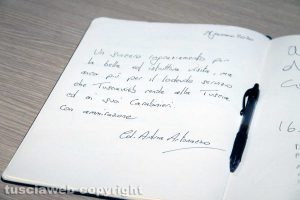 Un sincero ringraziamento per
la bella ed istruttiva visita, ma
ancor più per il lodevole servizio
che Tusciaweb rende alla Tuscia
ed ai suoi Carabinieri
Con ammirazione
Col. Andrea
16
tusciaweb copyright